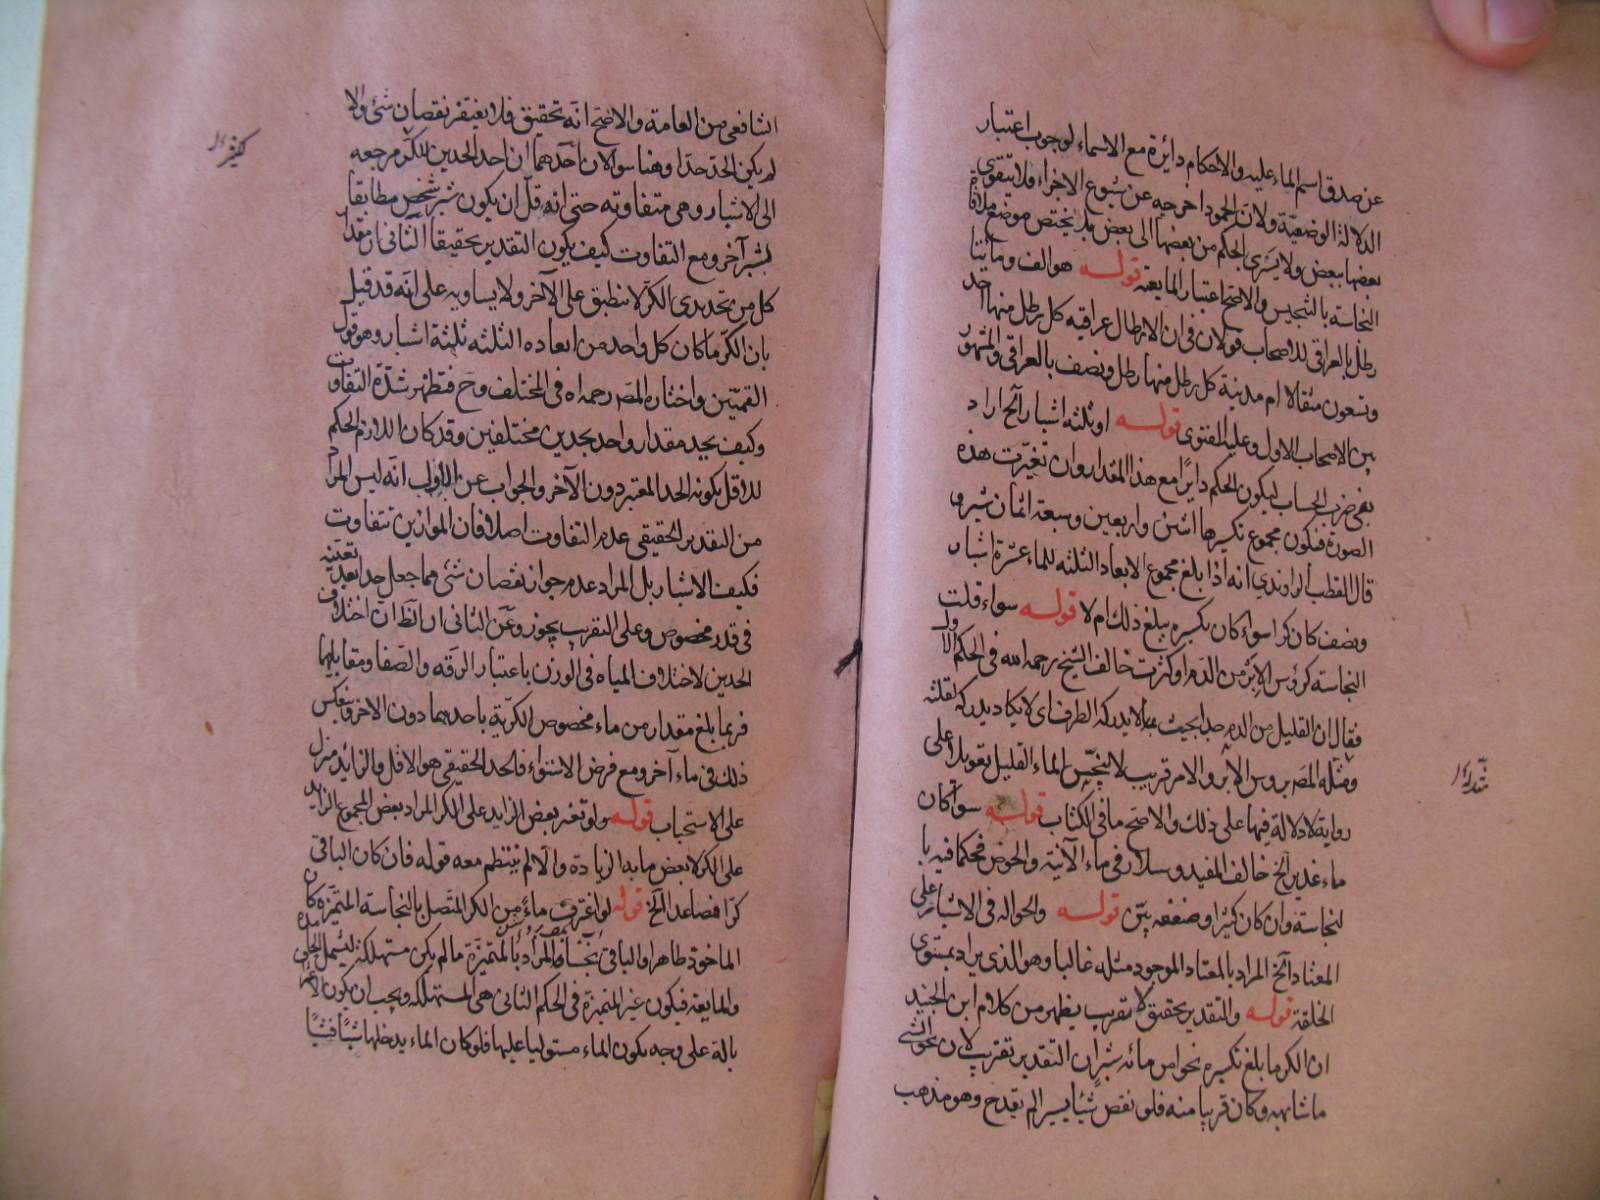 عن صدق اسم الماء عليه والاحكام دايرة مع الاسماء لوجوب اعتبار
الدلالة الوضعيّة ولان الجمود اخرجه عن شيوع الاجزاء فلا يتقوى
بعضها ببعض ولا يسرى الحكم من بعضها الى بعض بل يختص موضع ملاقاة
النجاسة بالتنجيس والاصح اعتبار المايعية قوله هو الف ومائتا
رطل بالعراقى للاصحاب قولان فى ان الارطال عراقيه كل رطل منها احد
وتسعون مثقالا ام مدينة كل رطل منها رطل ونصف بالعراقى والمشهور
بين الاصحاب الاول وعليه الفتوى قوله او ثلثه اشبار آلخ اراد
بقى ضرب الحساب ليكون الحكم دايرًا مع هذا المقدار وان تغيّرت هذه
الصورة فيكون مجموع تكسيرها اثنين واربعين وسبعة اثمان شبر و
قال القطب الراوندي انه اذا بلغ مجموع الابعاد الثلثه للماء عشرة اشبار
ونصف كان كرا سواء كان تكسيره يبلغ ذلك ام لا قوله سواء قلت
النجاسة كرؤس الابر من الدم او كثرت خالف الشيخ رحمه الله فى الحكم الاول
فقال ان القليل من الدم جدا بحيث لا يدركه الطرف اى لا يكاد يدركه لقلته
ومثله المصر بروس الابر والامر قريب لا ينجّس الماء القليل تعويلا على
رواية لا دلالة فيها على ذلك والاصح ما فى الكتاب قوله سوآ كان
ماء غدير آلخ خالف المفيد وسلار فى ماء الآنية والحوض فحكما فيه با
لنجاسة وان كان كثيرًا وضعفه بيّن قوله والحواله فى الاشبار على
المعتاد آلخ المراد بالمعتاد الموجود مثله غالبا وهو الذى يراد بمستوى
الخلقة قوله والتقدير تحقيق لا تقريب يظهر من كلام ابن الجنيد
ان الكر ما بلغ تكسيره نحوا من مائه شبر ان التقدير تقريب لان نحو الشى
ما شابهه وكان قريبا منه فلو نقص شيئا يسيرا لم يقدح وهو مذهب
الشافعى من العامة والاصح انه تحقيق فلا يغتفر نقصان شئ والا
لم يكن الحد حدا وهنا سوالان احدهما ان احد الحدين للكر مرجعه
الى الاشبار وهى متفاوته حتى انه قل ان يكون شبر شخص مطابقا
لشبر آخر ومع التفاوت كيف يكون التقدير تحقيقا الثانى ان مقدار
كل من تحديدى الكر لا ينطبق على الآخر ولا يساويه على انه قد قيل
بان الكر ما كان كل واحد من ابعاده الثلثه ثلثة اشبار وهو قول
القميّين واختاره المصر رحمه اه فى المختلف وح فتظهر شدّة التفاوت
وكيف يحد مقدار واحد بحدين مختلفين وقد كان اللازم الحكم
للاقل بكونه الحد المعتبر دون الآخر والجواب عن الاول انه ليس المراد
من التقدير الحقيقى عدم التفاوت اصلا فان الموازين تتفاوت
فكيف الاشبار بل المراد عدم جواز نقصان شئ مما جعل حدا بعد تعيّنه
فى قدر مخصوص وعلى التقريب يجوز وعن الثانى ان الظ ان اختلاف
الحدين لاختلاف المياه فى الوزن باعتبار الرقه والصفا ومقابليهما
فربما بلغ مقدار من ماء مخصوص الكرية باحدهما دون الاخر وينعكس
ذلك فى ماء آخر ومع فرض الاستواء فالحد الحقيقى هو الاقل والزايد منزل
على الاستحباب قوله ولو تغير بعض الزايد على الكر المراد بعض المجموع الزايد
على الكر لا بعض ما به الزيادة والا لم ينتظم معه قوله فان كان الباقى
كرا فصاعدا آلخ قوله لو اغترف ماء من الكر المتصل بالنجاسة المتميزة كان
الماخوذ طاهرا والباقى نجسا المراد بالمتميّزة ما لم يكن مستهلكة ليشمل الجامدة
والمايعة فيكون غير المتميزة فى الحكم الثانى هى المستهلكه ويجب ان يكون الا
بالة على وجه يكون الماء مستوليا عليها فلو كان الماء يدخلها شيًا فشيًا